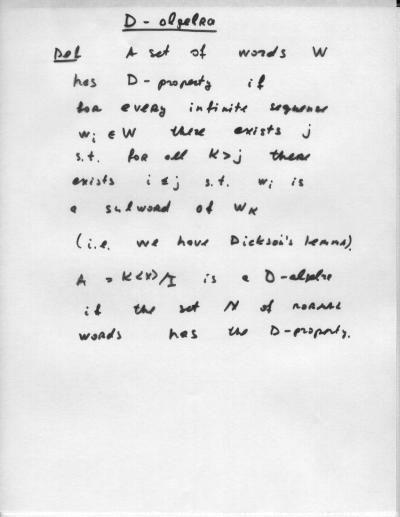 D - algebra
Def A set of words W
has D - property if
for every infinite sequence
wᵢ ∈ W there exists j
s.t. for all K > j there
exists i ≤ j s.t. wᵢ is
a subword of wₖ
(i.e. we have Dickson's lemma).
A = K<X>/I is a D-algebra
if the set N of normal
words has the D-property.